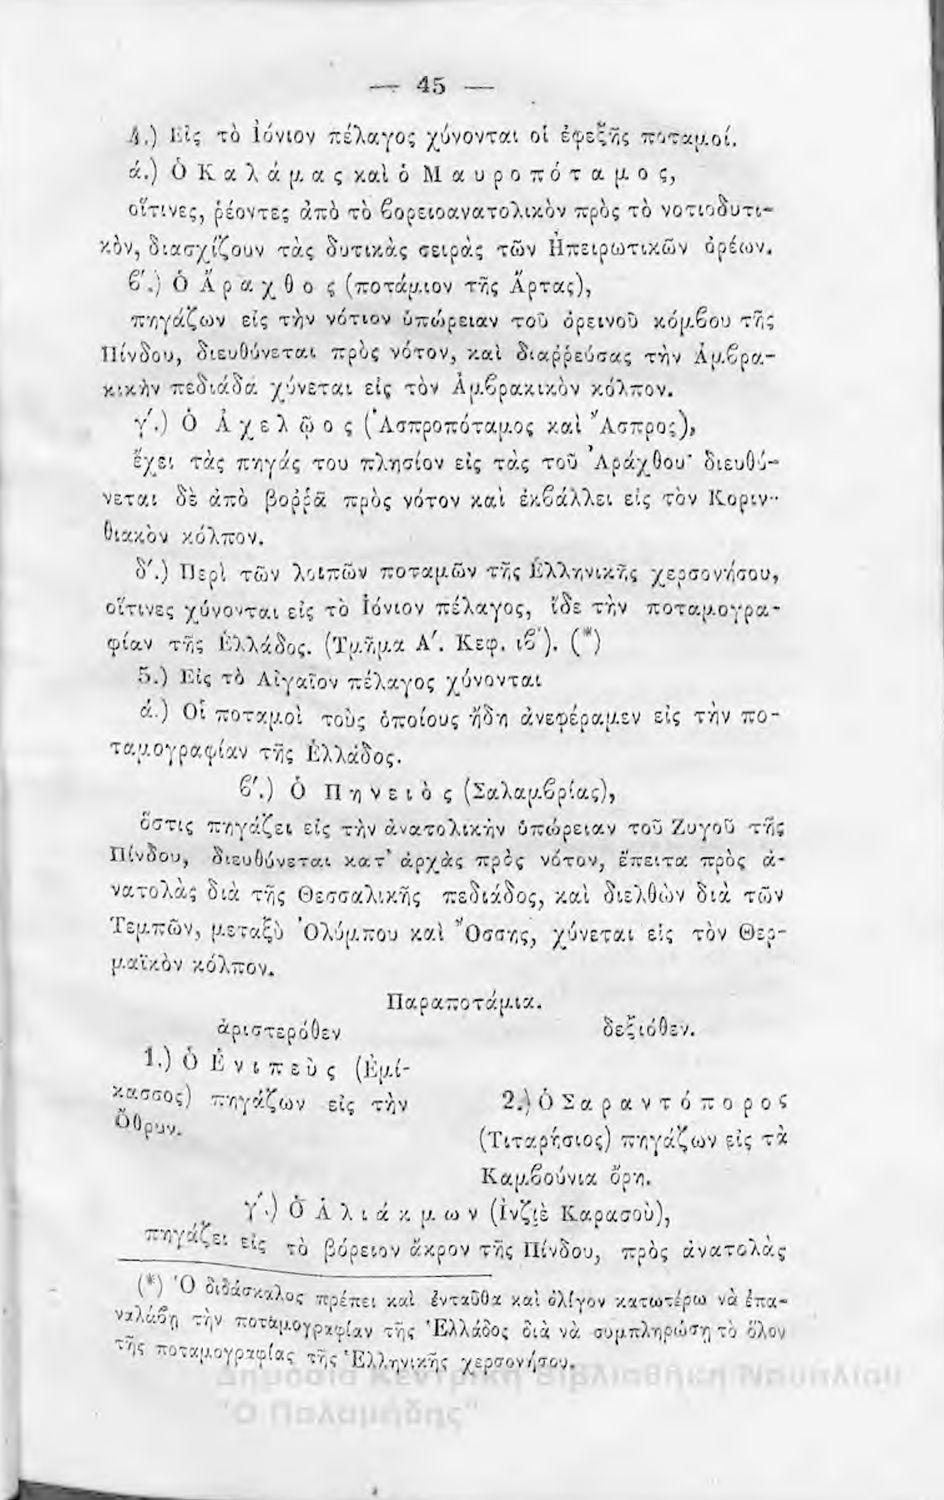 — 45 —
4.) Εἰς τὸ Ἰόνιον πέλαγος χύνονται οἱ ἐφεξῆς ποταμοί.
ά.) Ὁ Καλάμας καὶ ὁ Μαυροπόταμος,
οἵτινες, ῥέοντες ἀπὸ τὸ βορειοανατολικὸν πρὸς τὸ νοτιοδυτι-
κὸν, διασχίζουν τὰς δυτικὰς σειρὰς τῶν Ἠπειρωτικῶν ὀρέων.
ϐ'.) Ὁ Ἄραχθος (ποτάμιον τῆς Ἄρτας),
πηγάζων εἰς τὴν νότιον ὑπώρειαν τοῦ ὀρεινοῦ κόμϐου τῆς
Πίνδου, διευθύνεται πρὸς νότον, καὶ διαῤῥεύσας τὴν Ἀμϐρα-
κικὴν πεδιάδα χύνεται εἰς τὸν Ἀμϐρακικὸν κόλπον.
γ'.) Ὁ Ἀχελῷος (Ἀσπροπόταμος καὶ Ἄσπρος),
ἔχει τὰς πηγάς του πλησίον εἰς τὰς τοῦ Ἀράχθου· διευθύ-
νεται δὲ ἀπὸ βοῤῥᾶ πρὸς νότον καὶ ἐκϐάλλει εἰς τὸν Κοριν-
θιακὸν κόλπον.
δ'.) Περὶ τῶν λοιπῶν ποταμῶν τῆς Ἑλληνικῆς χερσονήσου,
οἵτινες χύνονται εἰς τὸ Ἰόνιον πέλαγος, ἴδε τὴν ποταμογρα-
φίαν τῆς Ἑλλάδος. (Τμῆμα Α'. Κεφ. ιϐ'). (*)
5.) Εἰς τὸ Αἰγαῖον πέλαγος χύνονται
ά.) Οἱ ποταμοὶ τοὺς ὁποίους ἤδη ἀνεφέραμεν εἰς τὴν πο-
ταμογραφίαν τῆς Ἑλλάδος.
ϐ'.) Ὁ Πηνειὸς (Σαλαμϐρίας),
ὅστις πηγάζει εἰς τὴν ἀνατολικὴν ὑπώρειαν τοῦ Ζυγοῦ τῆς
Πίνδου, διευθύνεται κατ' ἀρχὰς πρὸς νότον, ἔπειτα πρὸς ἀ-
νατολὰς διὰ τῆς Θεσσαλικῆς πεδιάδος, καὶ διελθὼν διὰ τῶν
Τεμπῶν, μεταξὺ Ὀλύμπου καὶ Ὄσσης, χύνεται εἰς τὸν Θερ-
μαϊκὸν κόλπον.
Παραποτάμια.
ἀριστερόθεν
1.) Ὁ Ἐνιπεὺς (Ἐμί-
κασσος) πηγάζων εἰς τὴν
Ὄθρυν.
δεξιόθεν.
2.) Ὁ Σαραντόπορος
(Τιταρήσιος) πηγάζων εἰς τὰ
Καμϐούνια ὄρη.
γ'.) Ὁ Ἁλιάκμων (Ἰνζὲ Καρασοὺ),
πηγάζει εἰς τὸ βόρειον ἄκρον τῆς Πίνδου, πρὸς ἀνατολὰς
(*) Ὁ διδάσκαλος πρέπει καὶ ἐνταῦθα καὶ ὀλίγον κατωτέρω νὰ ἐπα-
ναλάϐῃ τὴν ποταμογραφίαν τῆς Ἑλλάδος διὰ νὰ συμπληρώσῃ τὸ ὅλον
τῆς ποταμογραφίας τῆς Ἑλληνικῆς χερσονήσου.
Δημόσια Κεντρική Βιβλιοθήκη Ναυπλίου
"Ο Παλαμήδης"